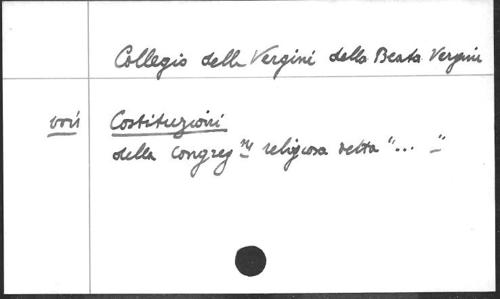 Collegio delle Vergini della Beata Vergine
vari Costituzioni
della congreg.ne religiosa detta "... "